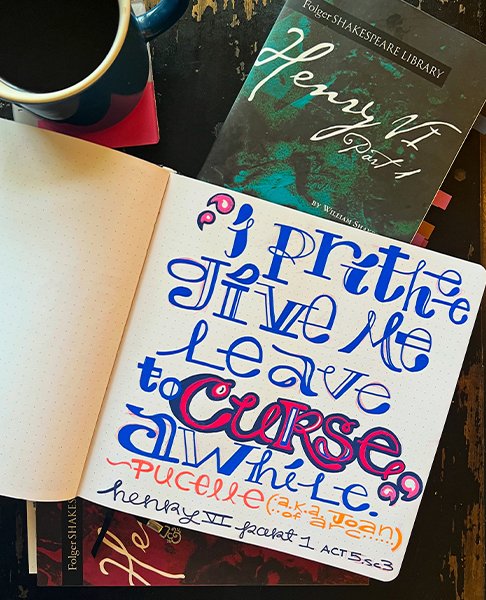 Folger SHAKESPEARE LIBRARY
Henry VI
Part 1
BY WILLIAM
"i prithee
give me
leave
to CURSE
awhile."
~PUCELLE (a.k.a. Joan of arc)
henry VI part 1 ACT 5. sc 3
Folger SHAKESPEARE
He